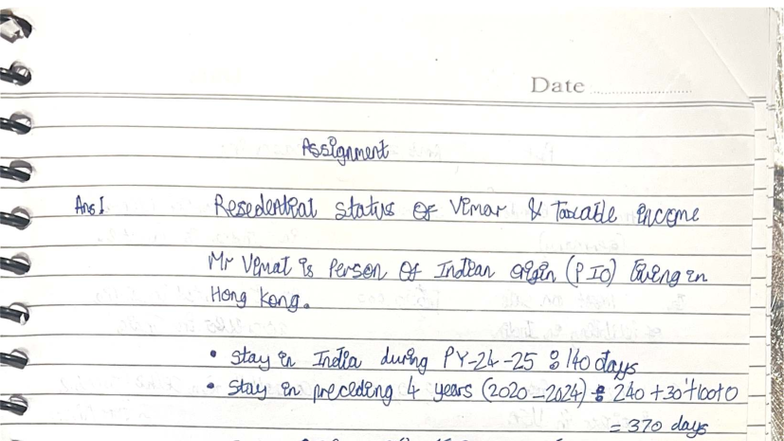 Date
Assignment
Ans 1 Resedential status of Vimar & Taxable income
Mr Vimal is Person of Indian Origin (P.IO) living in
Hong Kong.
• Stay in India during PY-24-25 : 140 days
• Stay in preceding 4 years (2020-2024) : 240 + 30 + 100 + 0
= 370 days